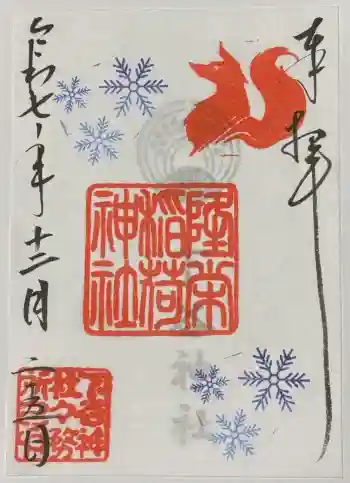 奉拝
隆栄
稲荷
神社
神社
令和七年十二月二五日